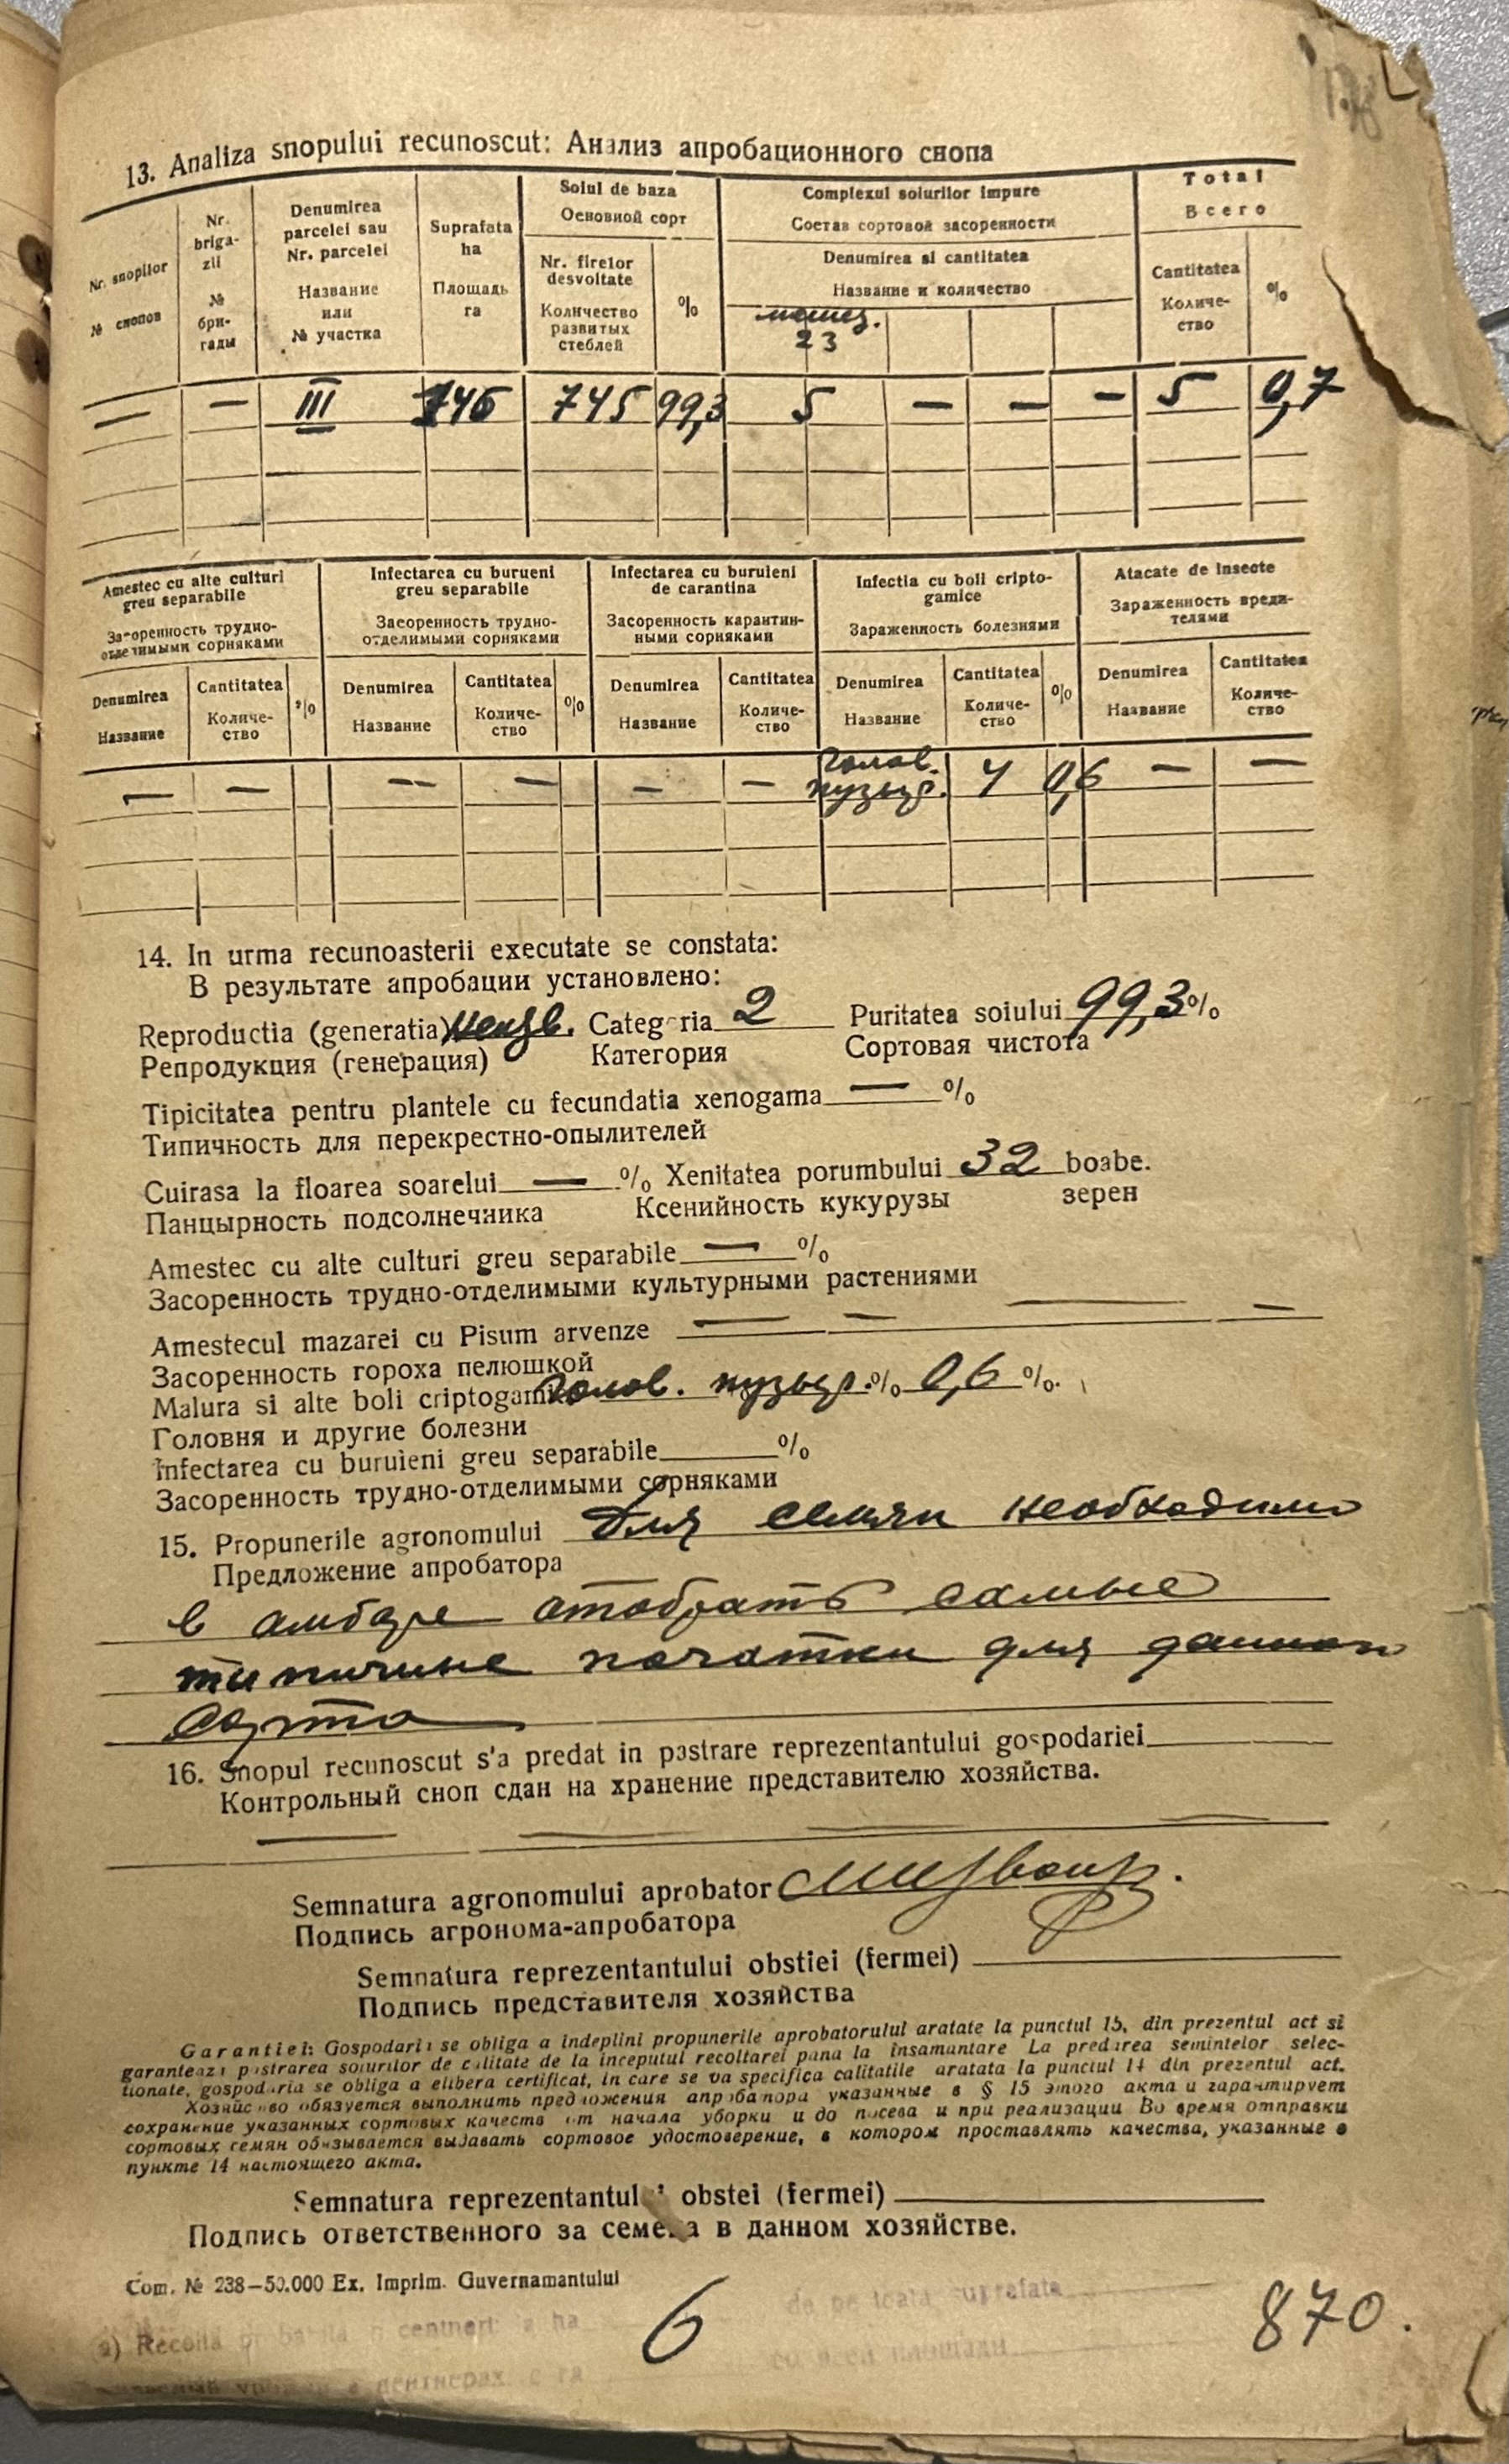 13. Analiza snopului recunoscut: Анализ апробационного снопа
Nr. snopilor
№ снопов
Nr. briga-
zii
№ бри-
гады
Denumirea
parcelei sau
Nr. parcelei
Название
или
№ участка
Suprafata
ha
Площадь
га
Soiul de baza
Основной сорт
Nr. firelor
desvoltate
Количество
развитых
стеблей
%
Complexul soiurilor impure
Состав сортовой засоренности
Denumirea si cantitatea
Название и количество
23
Total
Всего
Cantitatea
Количе-
ство
%
— — III 146 745 99,3 5 — — — 5 0,7
Amestec cu alte culturi
greu separabile
Засоренность трудно-
отделимыми сорняками
Infectarea cu burueni
greu separabile
Засоренность трудно-
отделимыми сорняками
Infectarea cu buruieni
de carantina
Засоренность карантин-
ными сорняками
Infectia cu boli cripto-
gamice
Зараженность болезнями
Atacate de insecte
Зараженность вреди-
телями
Denumirea
Название
Cantitatea
Количе-
ство
%
Denumirea
Название
Cantitatea
Количе-
ство
%
Denumirea
Название
Cantitatea
Количе-
ство
Denumirea
Название
Cantitatea
Количе-
ство
%
Denumirea
Название
Cantitatea
Количе-
ство
— — — — — — голов. пузыр. 4 0,6 — —
14. In urma recunoasterii executate se constata:
В результате апробации установлено:
Reproductia (generatia) неизв. Categoria 2 Puritatea soiului 99,3%
Репродукция (генерация) Категория Сортовая чистота
Tipicitatea pentru plantele cu fecundatia xenogama — %
Типичность для перекрестно-опылителей
Cuirasa la floarea soarelui — % Xenitatea porumbului 32 boabe.
Панцырность подсолнечника Ксенийность кукурузы зерен
Amestec cu alte culturi greu separabile — %
Засоренность трудно-отделимыми культурными растениями
Amestecul mazarei cu Pisum arvenze — — —
Засоренность гороха пелюшкой
Malura si alte boli criptogamice голов. пузыр. % 0,6 %.
Головня и другие болезни
Infectarea cu buruieni greu separabile %
Засоренность трудно-отделимыми сорняками
15. Propunerile agronomului Для семян необходимо
Предложение апробатора
в амбаре отобрать самые
типичные початки для данного
сорта
16. Snopul recunoscut s'a predat in pastrare reprezentantului gospodariei
Контрольный сноп сдан на хранение представителю хозяйства.
Semnatura agronomului aprobator
Подпись агронома-апробатора
Semnatura reprezentantului obstiei (fermei)
Подпись представителя хозяйства
Garantiei: Gospodaria se obliga a indeplini propunerile aprobatorului aratate la punctul 15, din prezentul act si
garanteaza pastrarea soiurilor de calitate de la inceputul recoltarei pana la insamantare La predarea semintelor selec-
tionate, gospodaria se obliga a elibera certificat, in care se va specifica calitatile aratata la punctul 14 din prezentul act.
Хозяйство обязуется выполнить предложения апробатора указанные в § 15 этого акта и гарантирует
сохранение указанных сортовых качеств от начала уборки и до посева и при реализации Во время отправки
сортовых семян обязывается выдавать сортовое удостоверение, в котором проставлять качества, указанные в
пункте 14 настоящего акта.
Semnatura reprezentantului obstei (fermei)
Подпись ответственного за семена в данном хозяйстве.
Com. № 238—50.000 Ex. Imprim. Guvernamantului
6 870.